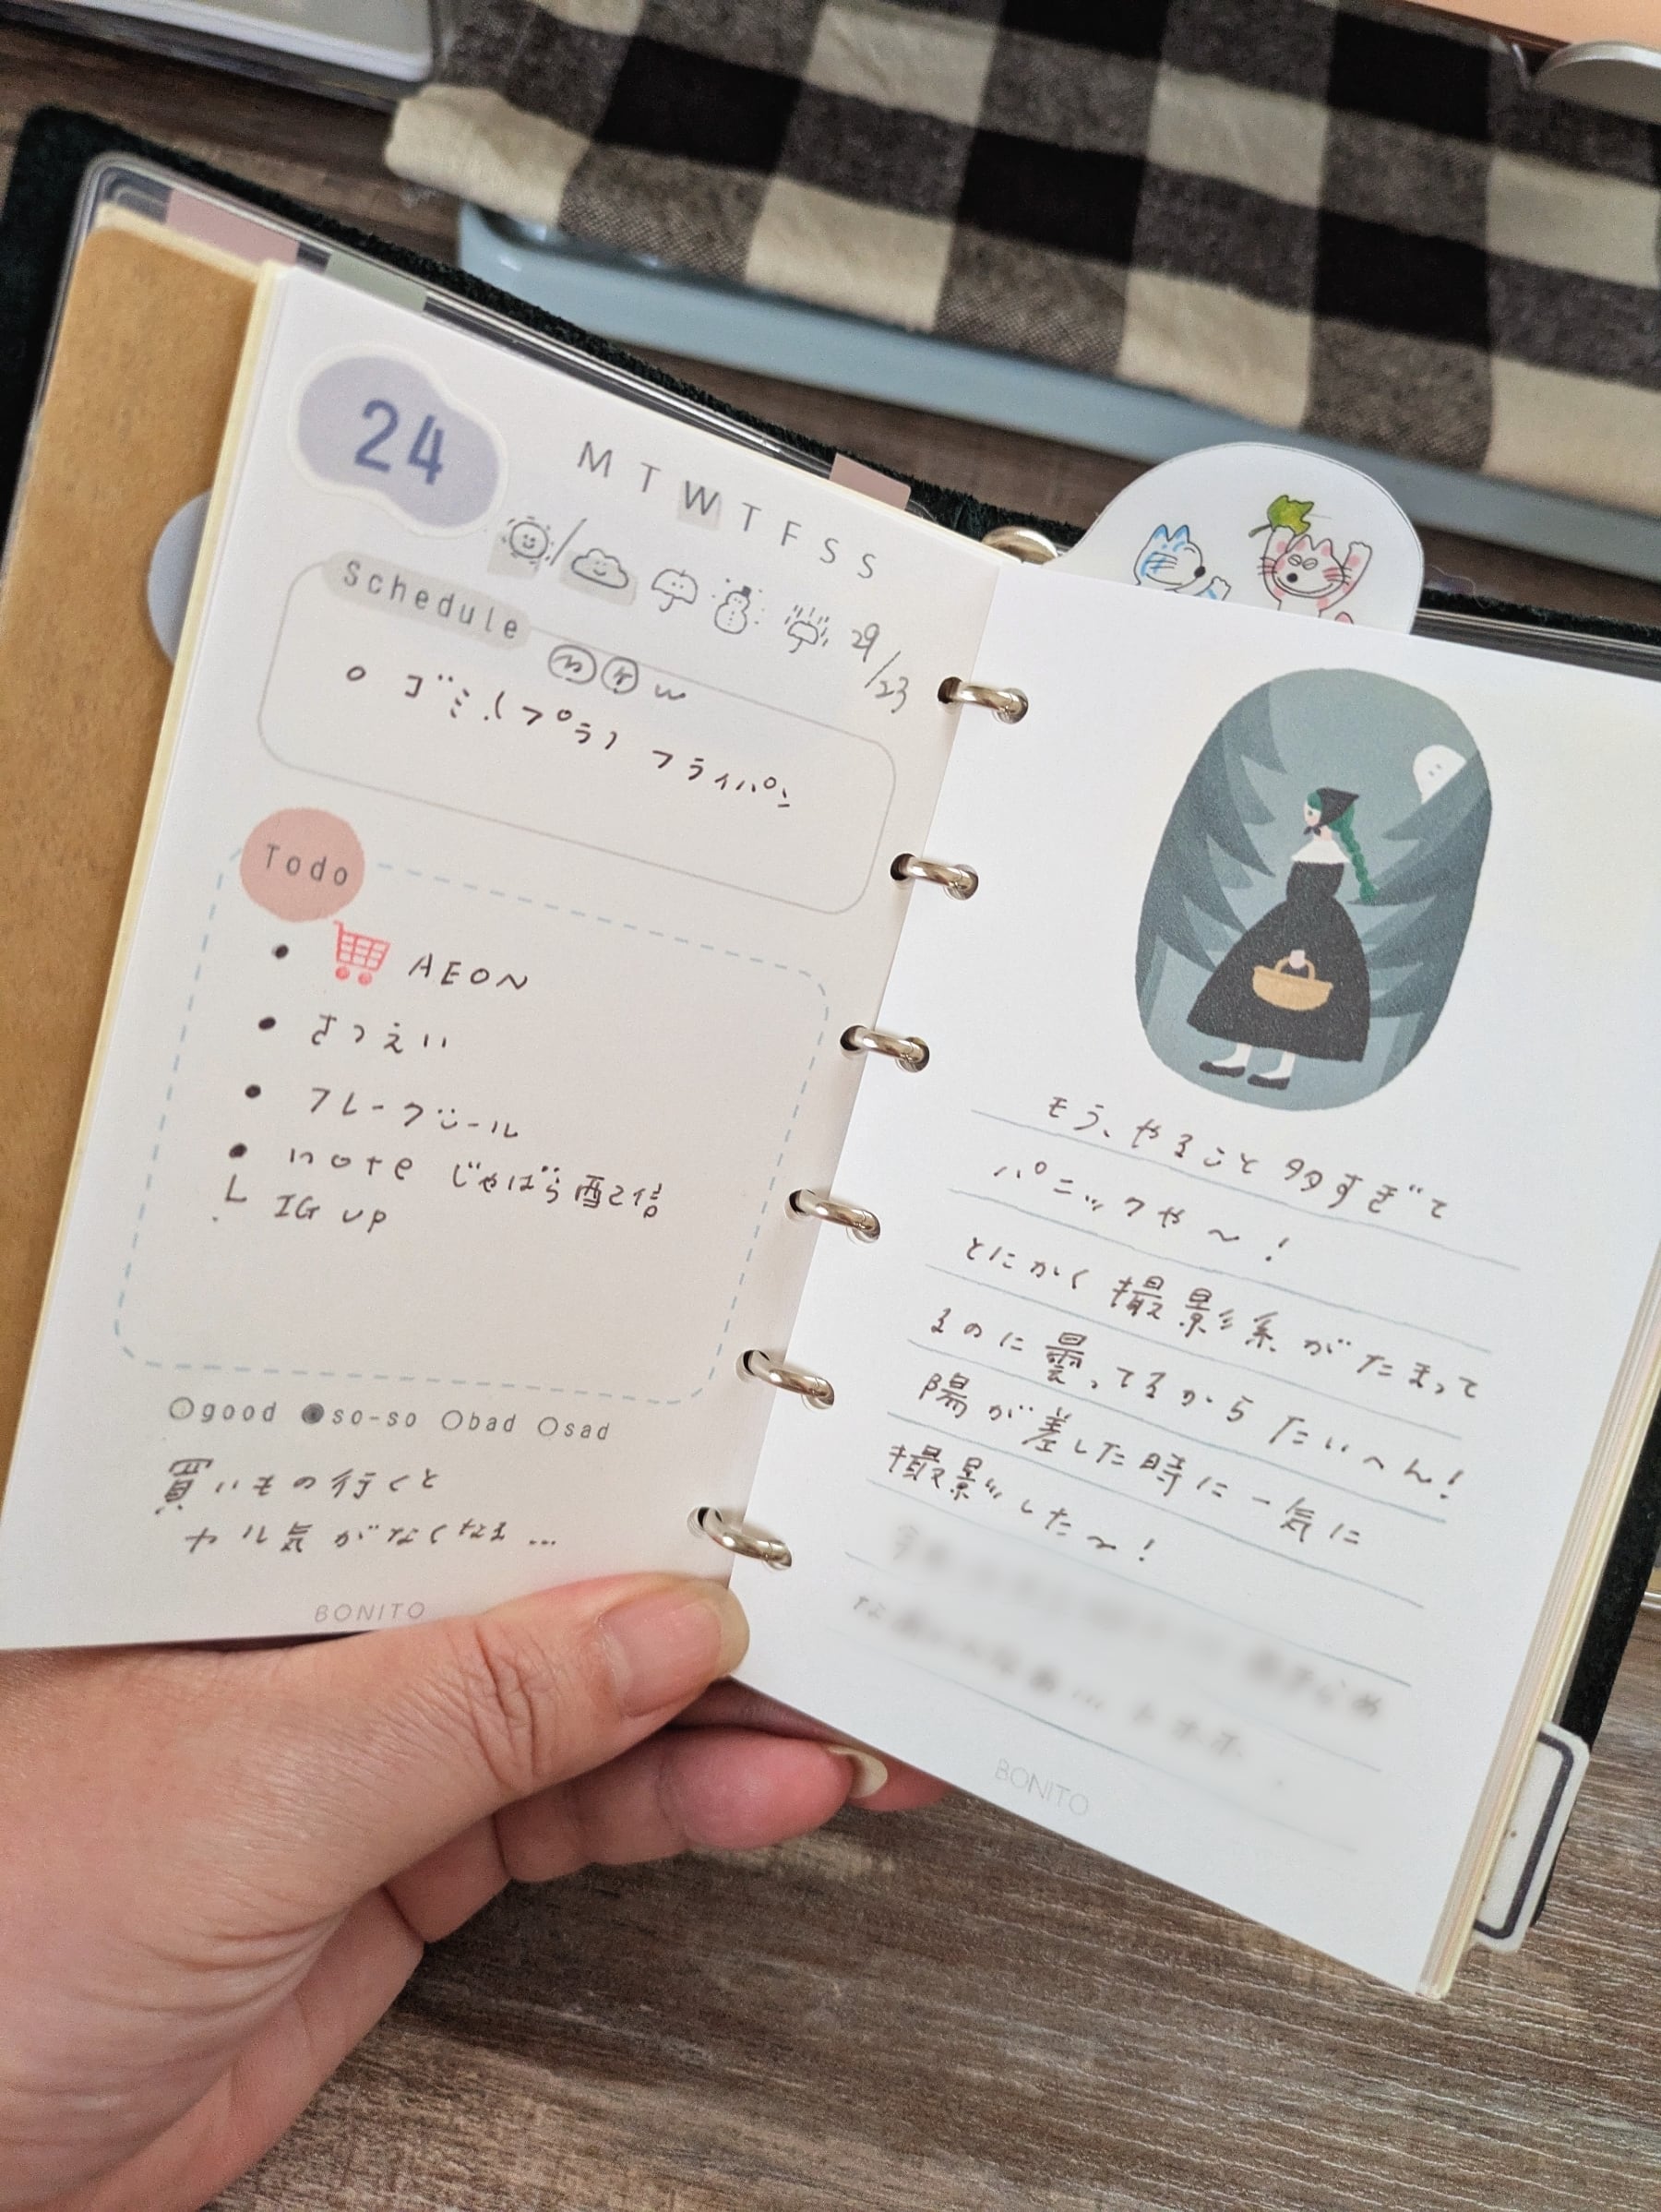 24
M T W T F S S
29/23
schedule
○ ゴミ(プラ) フライパン
Todo
• AEON
• さつえい
• フレークシール
• note じゃばら配信
└ IG UP
○good ●so-so ○bad ○sad
買いもの行くと
ヤル気がなくなる…
BONITO
もう、やること多すぎて
パニックや〜!
とにかく撮影系がたまって
るのに曇ってるからたいへん!
陽が差した時に一気に
撮影した〜!
BONITO